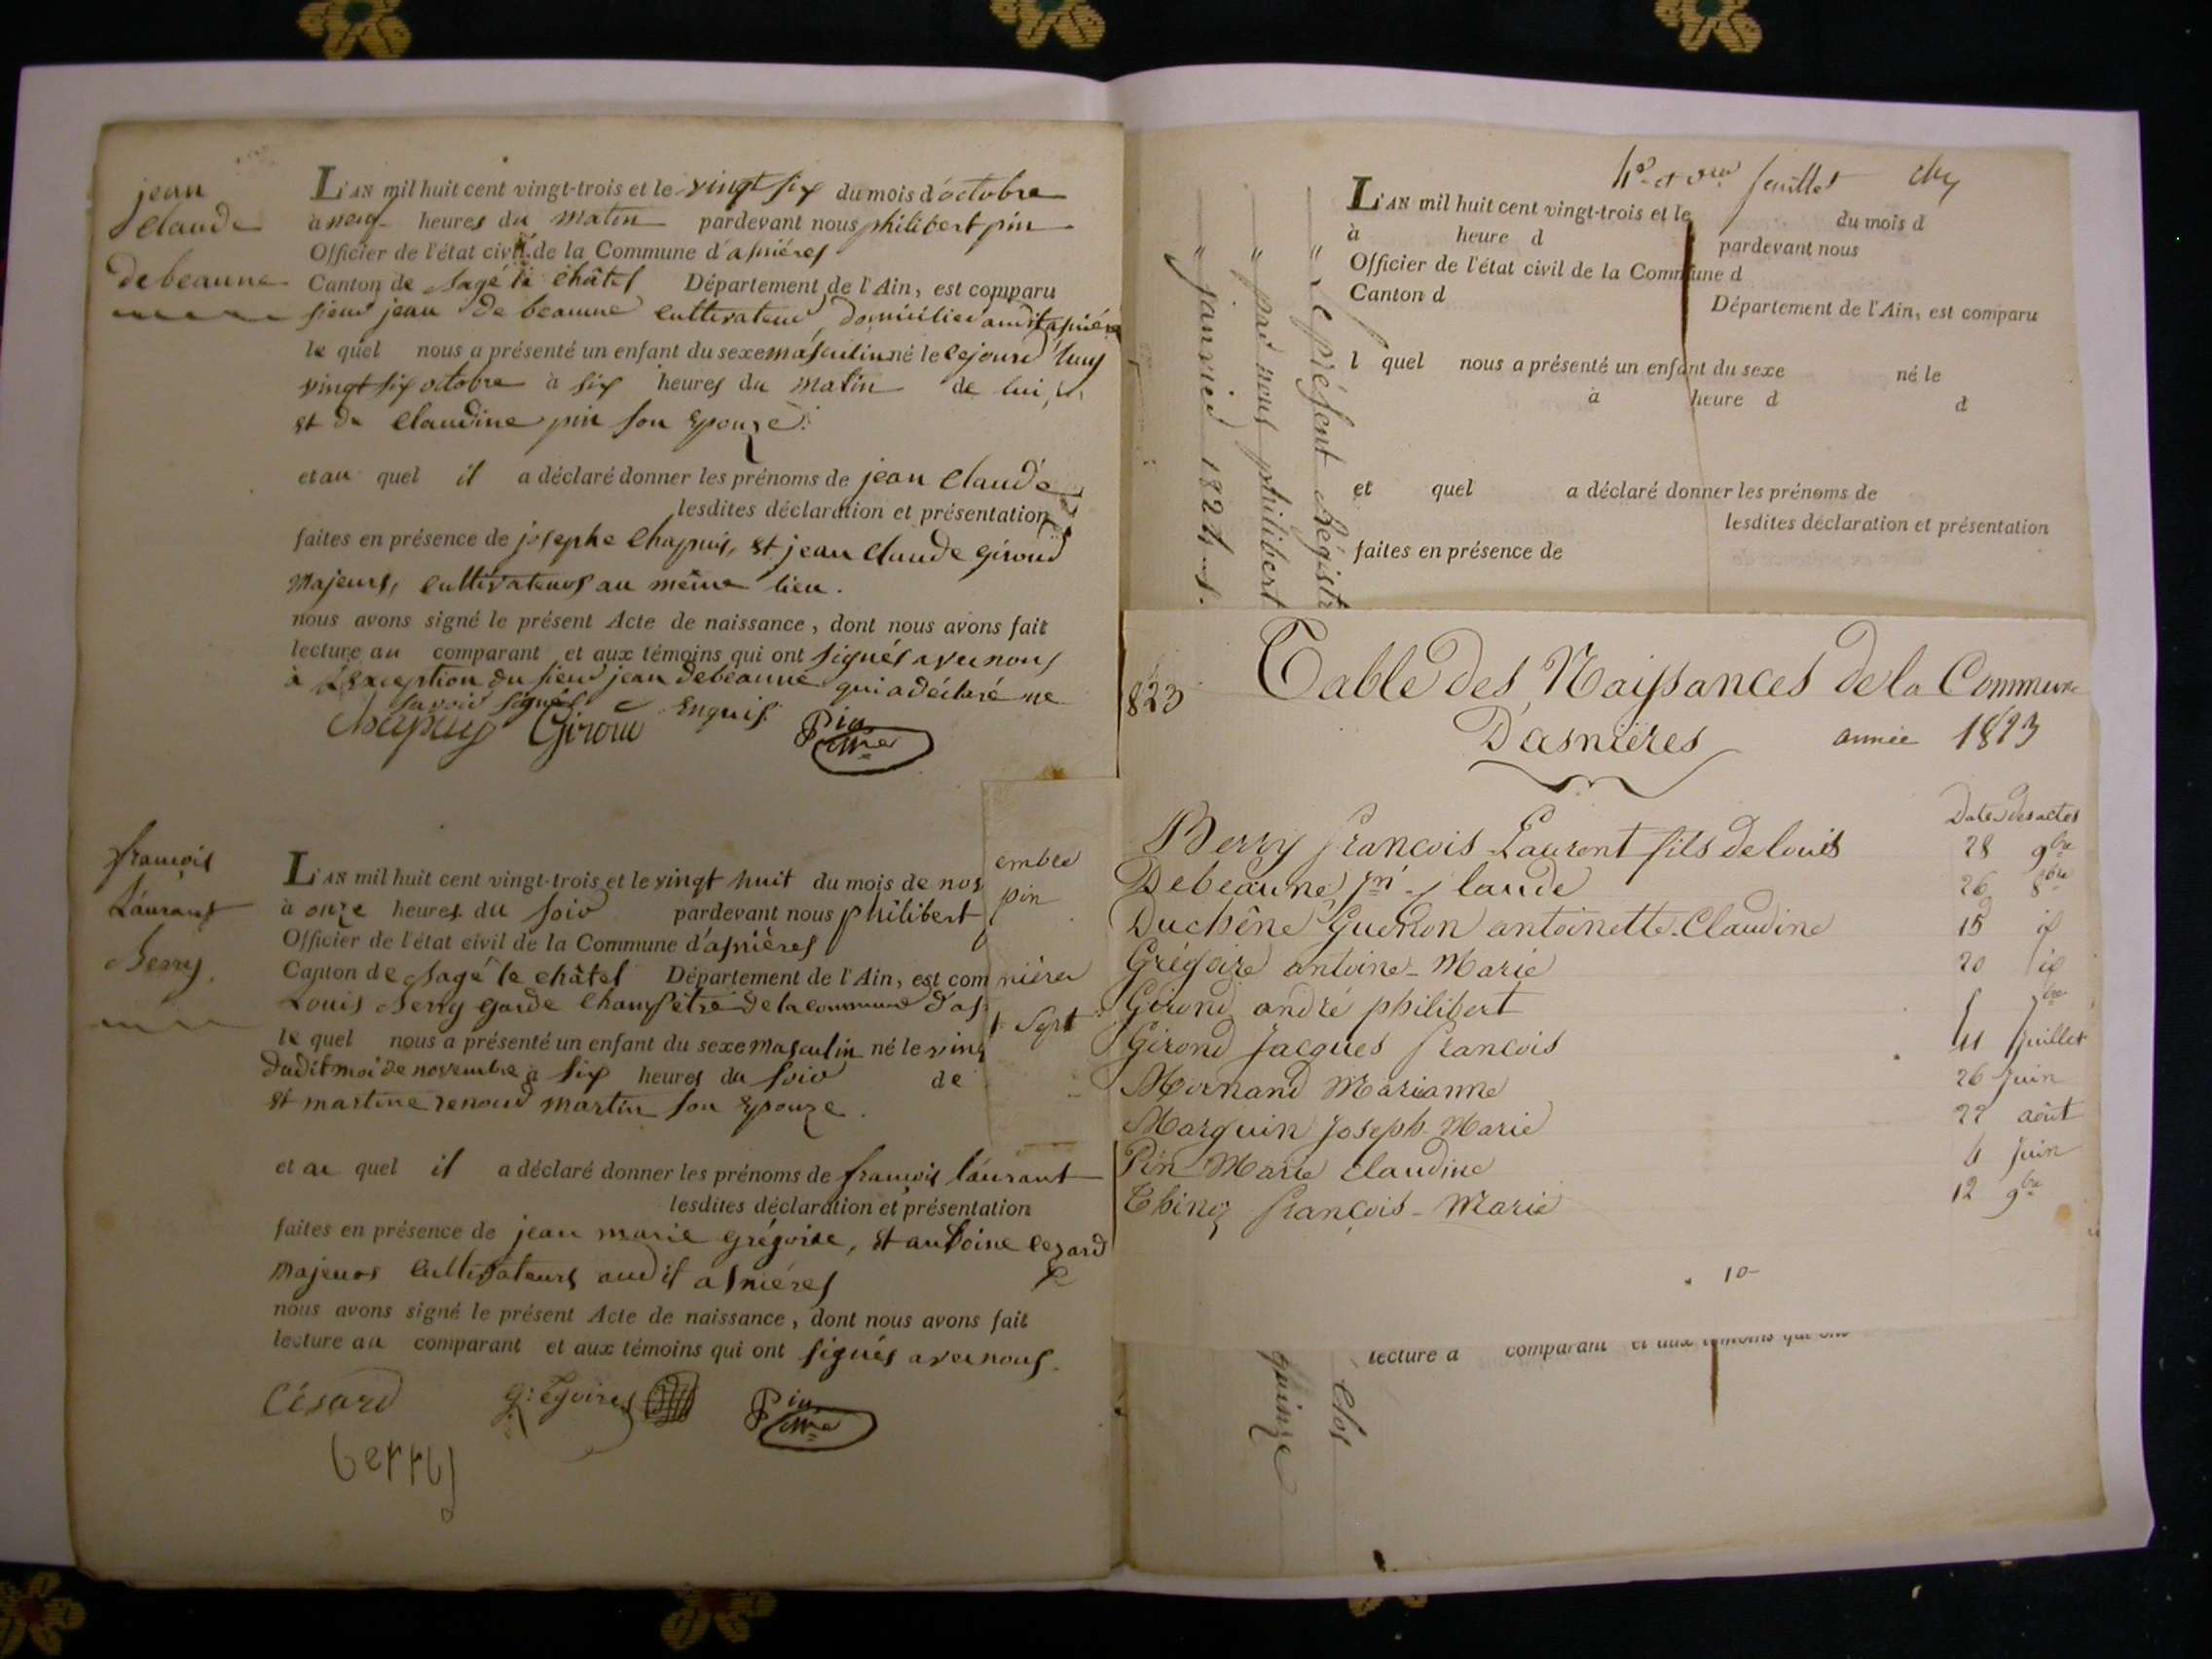 jean
Claude
debeaune
L'AN mil huit cent vingt-trois et le vingt six du mois d'octobre
à neuf heures du matin pardevant nous philibert pin
Officier de l'état civil de la Commune d'asniéres
Canton de Bagé le châtel Département de l'Ain, est comparu
sieur jean de beaune cultivateur domicilier audit asniéres
le quel nous a présenté un enfant du sexe masculin né le cejourd'huy
vingt six octobre à six heures du matin de lui
et de Claudine pin son Epouze
et au quel il a déclaré donner les prénoms de jean Claude
lesdites déclaration et présentation
faites en présence de josephe Chapuis, et jean Claude giroud
majeurs, cultivateurs au même lieu.
nous avons signé le présent Acte de naissance, dont nous avons fait
lecture au comparant et aux témoins qui ont signés avecnous
à L'exception du sieur jean debeaune qui a déclaré ne
savoir signé Enquis.
Chapuy Giroud Pin
mre
françois
Láurant
Berry.
L'AN mil huit cent vingt-trois et le vingt huit du mois de nov
à onze heures du soir pardevant nous philibert
Officier de l'état civil de la Commune d'asniéres
Canton de Bagé le châtel Département de l'Ain, est com
Louis Berry garde Champêtre de la commune d'as
le quel nous a présenté un enfant du sexe masculin né le ving
dudit moi de novembre à six heures du soir de
et martine renoud martin son Epouze.
embre
pin
niéres
t Sept
et au quel il a déclaré donner les prénoms de françois láurant
lesdites déclaration et présentation
faites en présence de jean marie grégoire, et antoine cezard
majeurs Cultivateurs audit asniéres
nous avons signé le présent Acte de naissance, dont nous avons fait
lecture au comparant et aux témoins qui ont signés avecnous.
Césard grégoire Pin
mre
berry
feuillet
L'AN mil huit cent vingt-trois et le du mois d
à heure d pardevant nous
Officier de l'état civil de la Commune d
Canton d Département de l'Ain, est comparu
l quel nous a présenté un enfant du sexe né le
à heure d d
et quel a déclaré donner les prénoms de
lesdites déclaration et présentation
faites en présence de
Le présent Régistr
par nous philibert
janvier 1824
1823
Table des Naissances de la Commune
D'asnières année 1823
Dates des actes
Berry francois Laurent fils de louis 28 9bre
Debeaune jn Claude 26 8bre
Duchêne Guénon antoinette Claudine 15 id
Grégoire antoine-Marie 20 id
Giroud andré philibert
Giroud Jacques francois juillet
Mornand Marianne 26 juin
Marguin Joseph-Marie 22 août
Pin Marie Claudine 4 juin
Thinoz françois-Marie 12 9bre
10
lecture a comparant et aux témoins qui ont
Clos
quinze